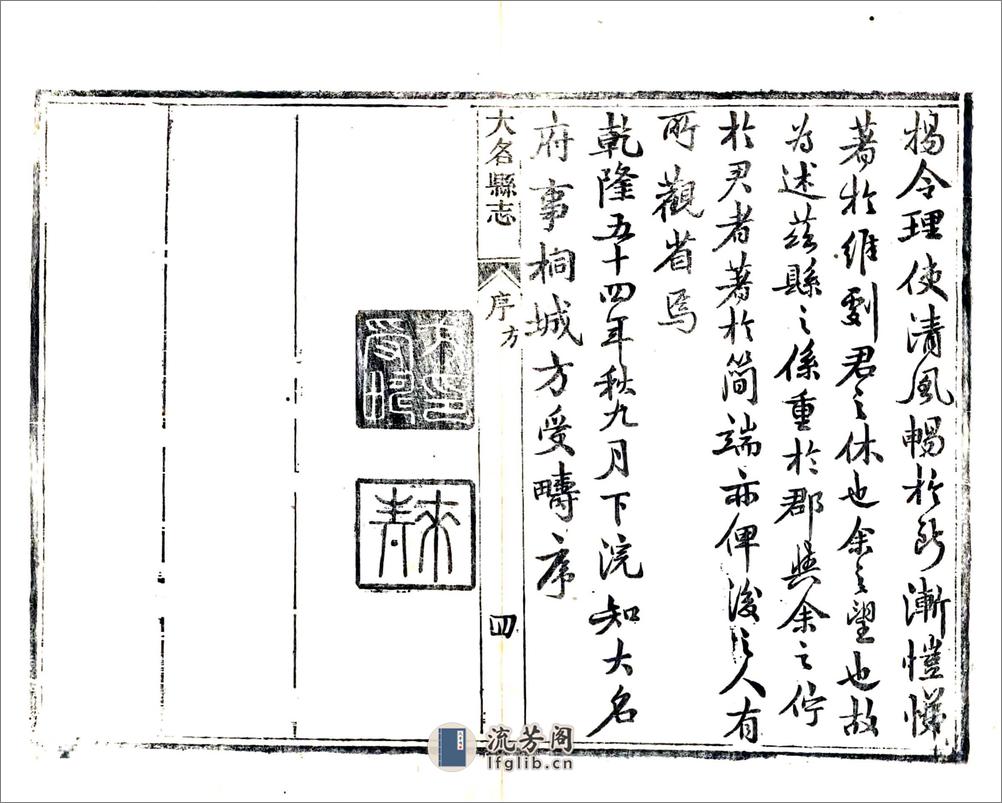 揚令理使清風暢於所漸愷悌
著於維則君之休也余之望也故
為述茲縣之係重於郡與余之佇
於尹者著於簡端亦俾後之人有
所觀省焉
乾隆五十四年秋九月下浣知大名
府事桐城方受疇序
大名縣志
序方
四
方受疇印
來青
流芳阁
lfglib.cn